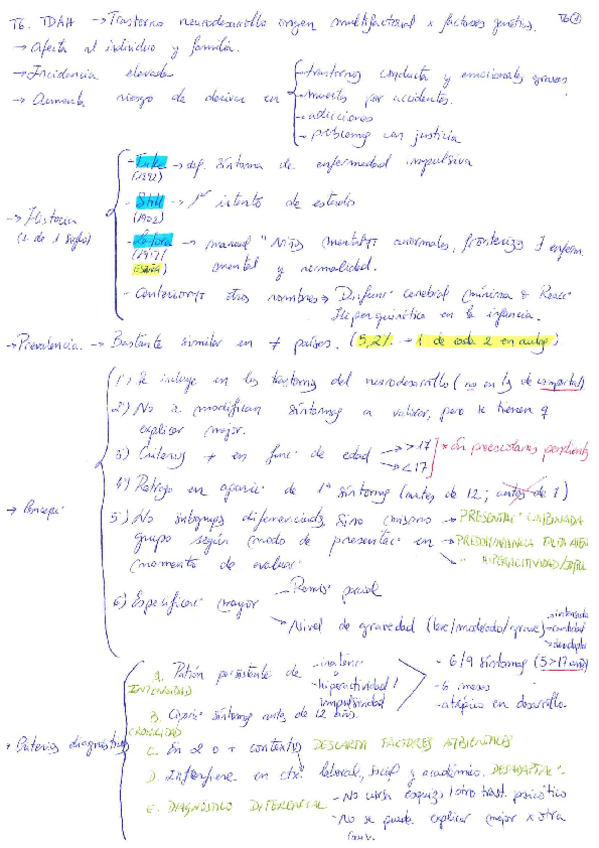 T6. TDAH → Trastorno neurodesarrollo origen multifactorial x factores genétics. T6①
→ Afecta al individuo y familia.
→ Incidencia elevada
→ Aumenta riesgo de derivar en
- trastornos conducta y emocionales graves
- muertes por accidentes.
- adicciones
- problemas con justicia
→ Historia
(+ de 1 siglo)
- Tuke → def. síntoma de enfermedad impulsiva
(1892)
- Still → 1er intento de estudio
(1902)
- Lafora → manual "Niños mental% anormales, fronterizo
(1917)
ESPAÑA
mental y normalidad.
- otros nombres → Disfunc cerebral mínima
Hiperquinética en la infancia.
→ Prevalencia. → Bastante similar en ≠ países. (5,2% → 1 de cada 2 en aula)
→ Concepc
1) Se incluye en los trastorns del neurodesarrollo (no en tg de comportal)
2) No se modifican síntomas a valorar, pero se tienen q
explicar mejor.
3) Criterios ≠ en func de edad → >17
→ <17
* En preescolares pendiente
4) Retraso en aparic de 1º síntoma (antes de 12; antes de 7)
5) No subgrups diferenciads, sino mismo
grupo según modo de presentac en
momento de evaluar
→ PRESENTAC COMBINADA
→ PREDOMINANCIA FALTA ATEN
HIPERACTIVIDAD/
6) Especificac mayor
- Remis parcial
→ Nivel de gravedad (leve/moderado/grave)
- intensidad
- cantidad
→ Criterios diagnóstics
A. Patrón persistente de
INTENSIDAD
- inatenc
- hiperactividad/
impulsividad
- 6/9 síntomas (5>17 años)
- 6 meses
- atípico en desarrollo
B. síntomas antes de 12 años.
CRONICIDAD
C. En 2 o + contextos DESCARTA FACTORES AMBIENTALES
D. Interfiere en ctx. laboral, social y académico. DESADAPTAC.
E. DIAGNÓSTICO DIFERENCIAL
- No cursa esquizo/otro trast. psicótico
- No se puede explicar mejor x otra